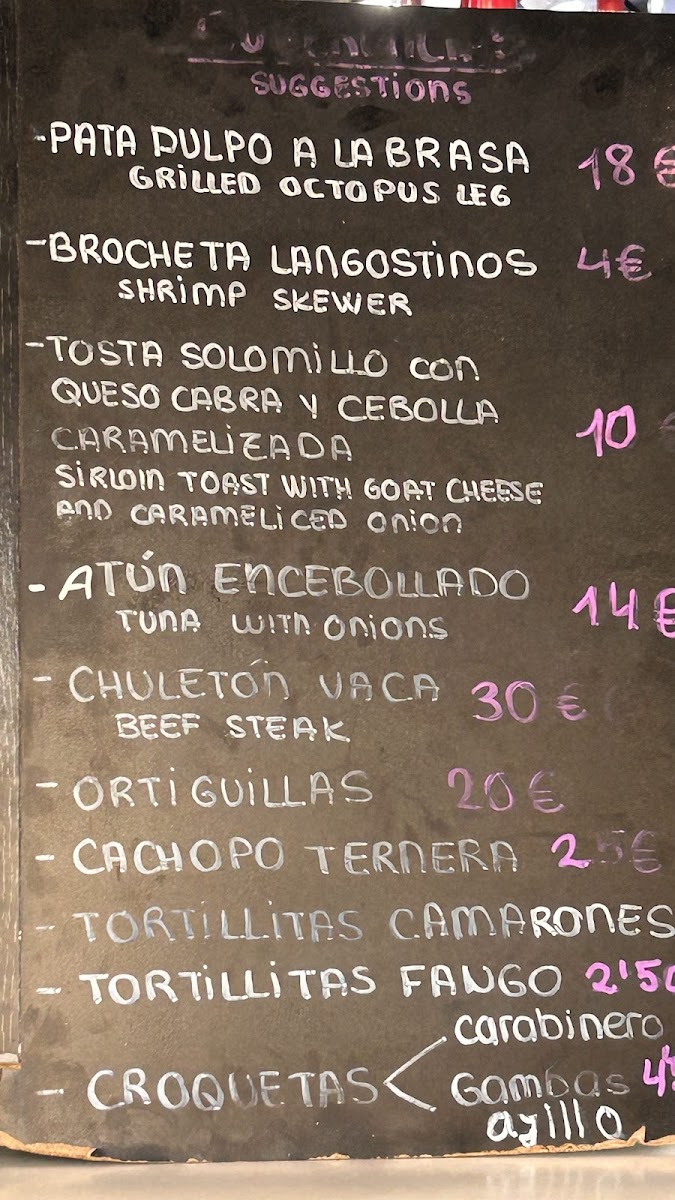 SUGGESTIONS
-PATA PULPO A LA BRASA 18 €
GRILLED OCTOPUS LEG
-BROCHETA LANGOSTINOS 4€
SHRIMP SKEWER
-TOSTA SOLOMILLO con
QUESO CABRA Y CEBOLLA
CARAMELIZADA 10 €
SIRLOIN TOAST WITH GOAT CHEESE
AND CARAMELICED onion
- ATÚN ENCEBOLLADO 14€
TUNA WITH ONIONS
- CHULETÓN VACA 30 €
BEEF STEAK
- ORTIGUILLAS 20€
- CACHOPO TERNERA 25€
- TORTILLITAS CAMARONES
- TORTILLITAS FANGO 2'50
carabinero
- CROQUETAS Gambas
ajillo